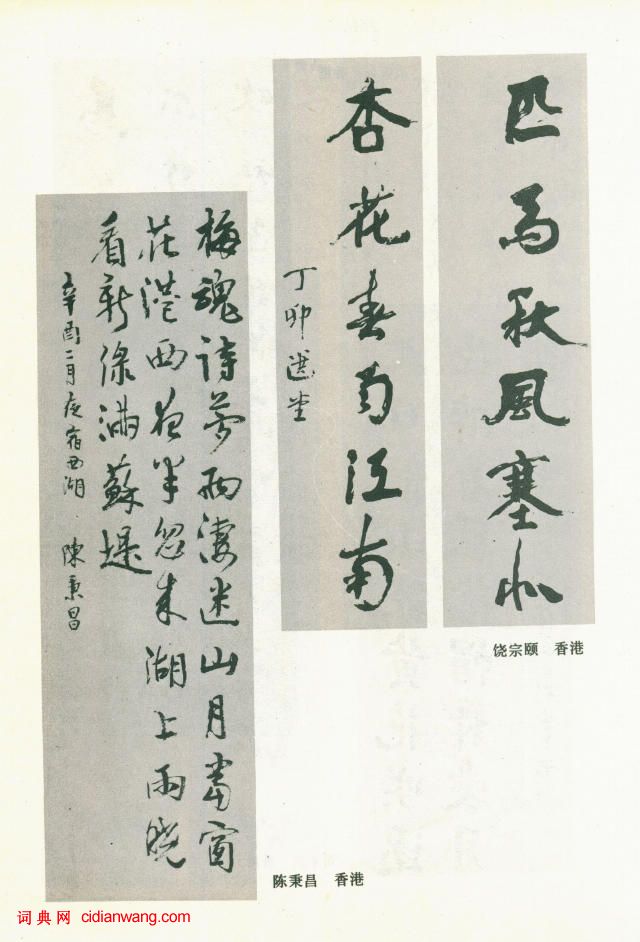 匹馬秋風塞北
杏花春雨江南
丁卯選堂
饶宗颐 香港
梅魂詩夢兩淒迷山月當窗
花港西夜半忽来湖上雨曉
看新綠滿蘇堤
辛酉二月夜宿西湖 陳秉昌
陈秉昌 香港
词典网 cidianwang.com